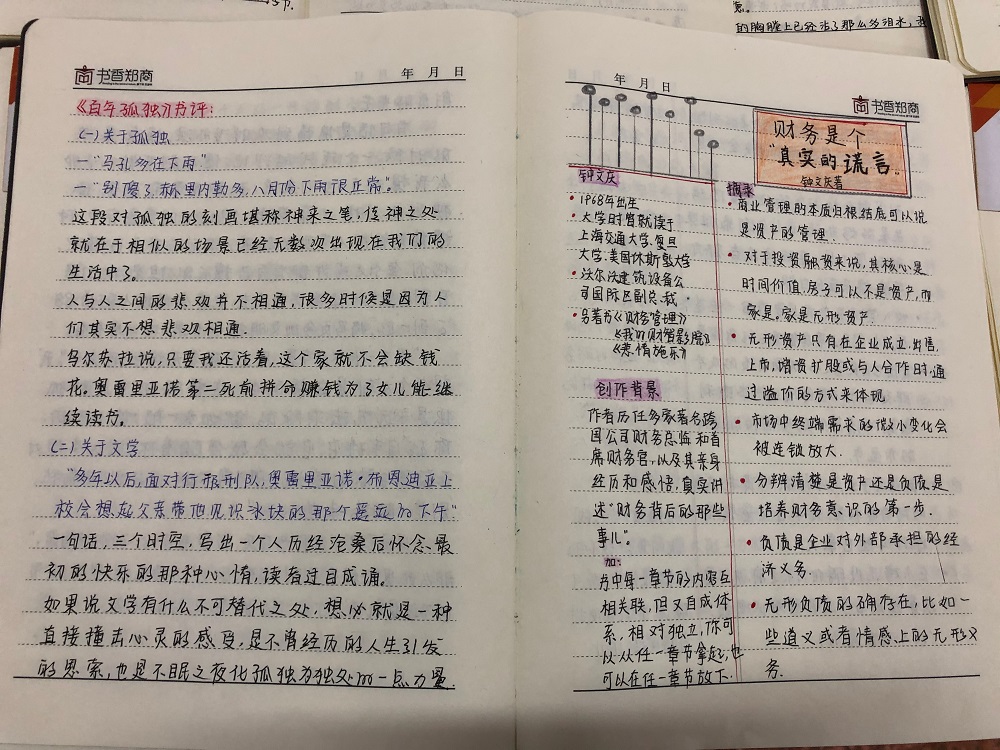 的胸膛上已经沾了那么多泪水，我
书香郑商
年 月 日
《百年孤独》书评：
(一)关于孤独
—“马孔多在下雨”
—“别傻了赫里内勒多，八月份下雨很正常”。
这段对孤独的刻画堪称神来之笔，传神之处
就在于相似的场景已经无数次出现在我们的
生活中了。
人与人之间的悲观并不相通，很多时候是因为人
们其实不想悲观相通.
乌尔苏拉说，只要我还活着，这个家就不会缺钱
花。奥雷里亚诺第二死前拼命赚钱为了女儿能继
续读书。
(二)关于文学
“多年以后，面对行刑队，奥雷里亚诺·布恩迪亚上
校会想起父亲带他见识冰块的那个遥远的下午”
一句话，三个时空，写出一个人历经沧桑后怀念最
初的快乐的那种心情，读者过目成诵。
如果说文学有什么不可替代之处，想必就是一种
直接撞击心灵的感受，是不曾经历的人生引发
的思索，也是不眠之夜化孤独为独处的一点力量.
年 月 日
书香郑商
财务是个
“真实的谎言”
钟文庆著
钟文庆
• 1968年出生
• 大学时曾就读于
上海交通大学.复旦
大学.美国休斯敦大学
• 沃尔沃建筑设备公
司国际区副总裁.
• 另著书《财务管理》
《我的财智影院》
《悲情施乐》
创作背景
作者历任多家著名跨
国公司财务总监和首
席财务官，以及其亲身
经历和感悟，真实讲
述“财务背后的那些
事儿”。
加:
书中每一章节的内容互
相关联，但又自成体
系，相对独立，你可
以从任一章节拿起，也
可以在任一章节放下.
摘录
• 商业管理的本质归根结底可以说
是资产的管理.
• 对于投资融资来说，其核心是
时间价值.房子可以不是资产，而
家是。家是无形资产.
• 无形资产只有在企业成立.出售.
上市，增资扩股或与人合作时，通
过溢价的方式来体现
• 市场中终端需求的微小变化会
被连锁放大.
• 分辨清楚是资产还是负债是
培养财务意识的第一步.
• 负债是企业对外部承担的经
济义务.
• 无形负债的确存在，比如一
些道义或者情感上的无形义
务.